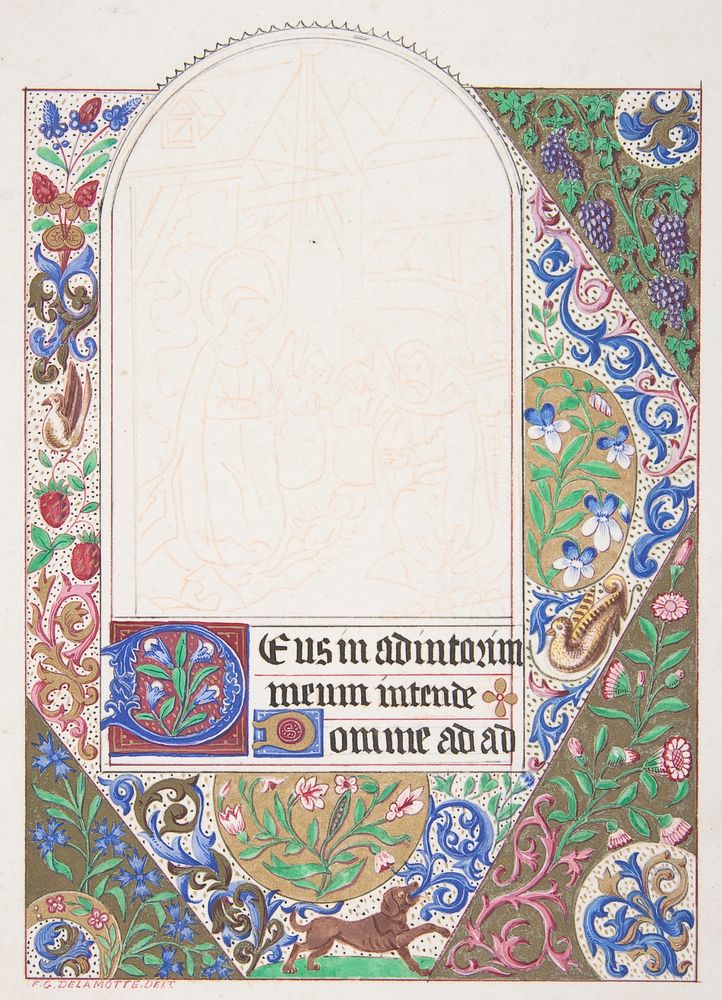 Deus in adintorim
meum intende
Domine ad ad
F. G. DELAMOTTE. DELT